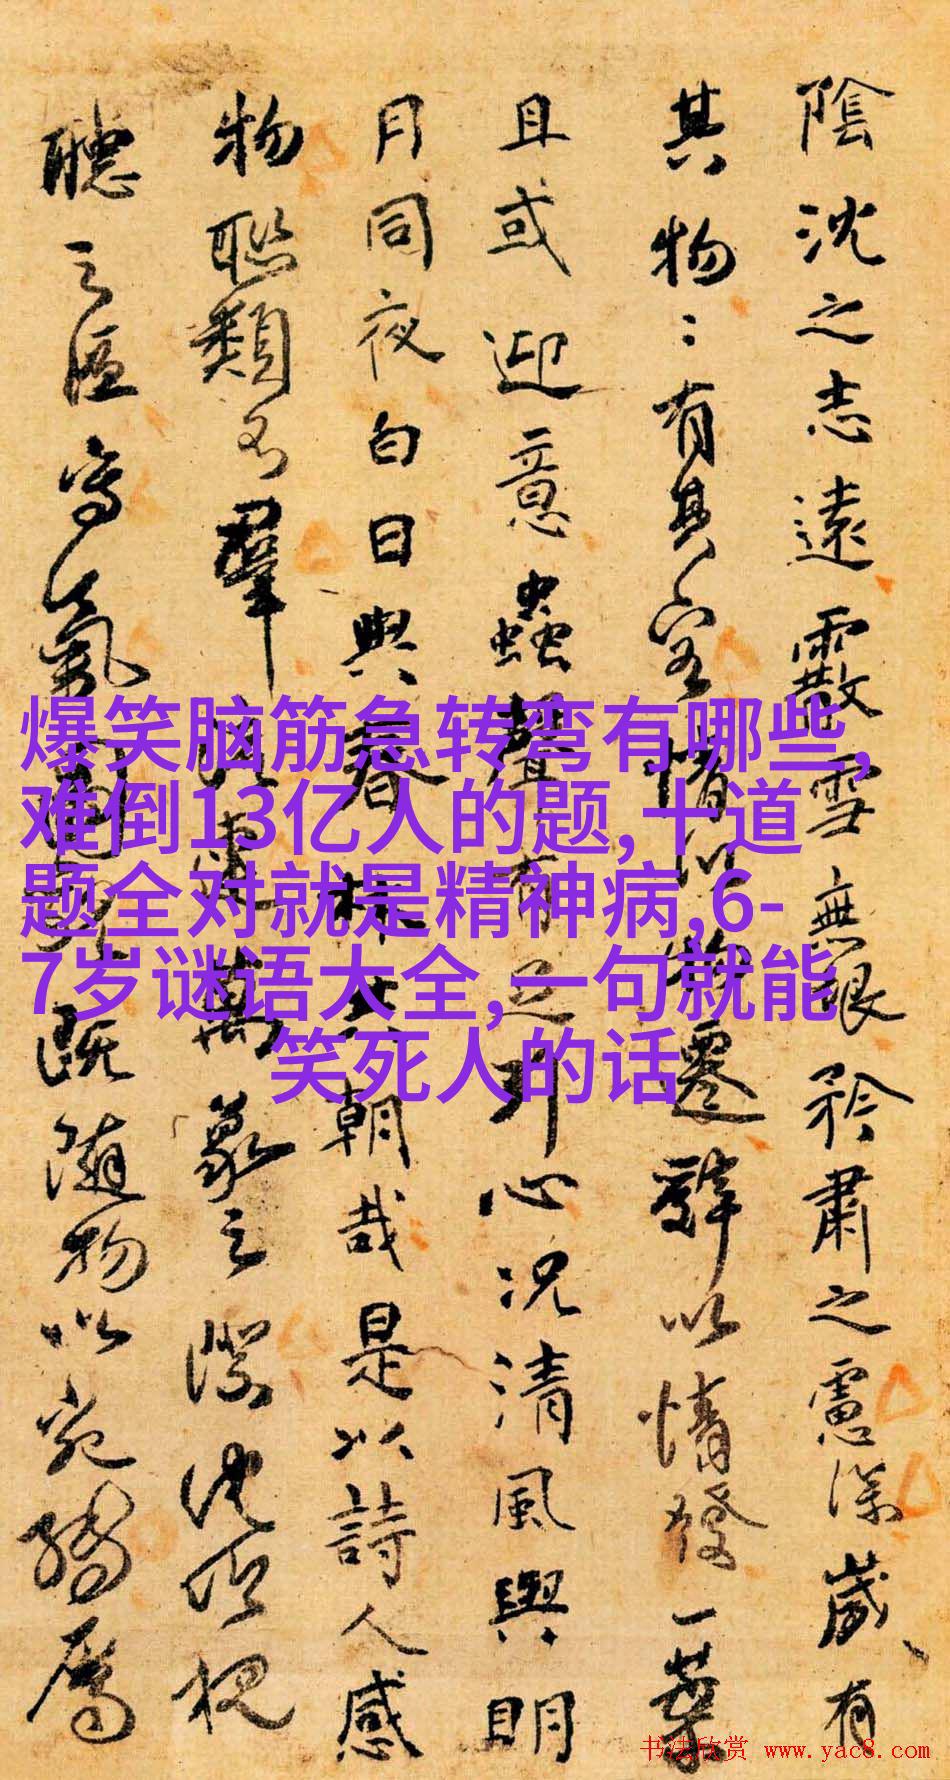 陰沈之志遠霰雪無限矜肅之慮深歲有
其物物有其容情以物遷辭以情發一葉
且或迎意蟲聲有足引心況清風與明
月同夜白日與春林共朝哉是以詩人感
物聯類不窮流連萬象之際沈吟視
聽之區寫氣圖貌既隨物以宛轉屬
爆笑脑筋急转弯有哪些,
难倒13亿人的题,十道
题全对就是精神病,6-
7岁谜语大全,一句就能
笑死人的话
书法欣赏 www.yac8.com